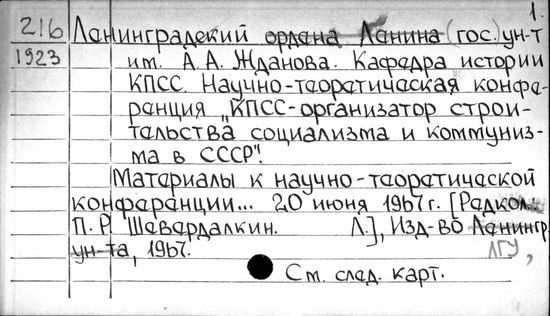 1.
216 Ленинградский ордена Ленина (гос.) ун-т
1923 им. А.А. Жданова. Кафедра истории
КПСС. Научно-теоретическая конфе-
ренция „КПСС-организатор строи-
тельства социализма и коммуниз-
ма в СССР".
Материалы к научно-теоретической
конференции... 20 июня 1967 г. [Редкол.:
П.Р. Шевердалкин. Л.], Изд-во Ленингр.
ун-та, 1967. ЛГУ,
См. след. карт.